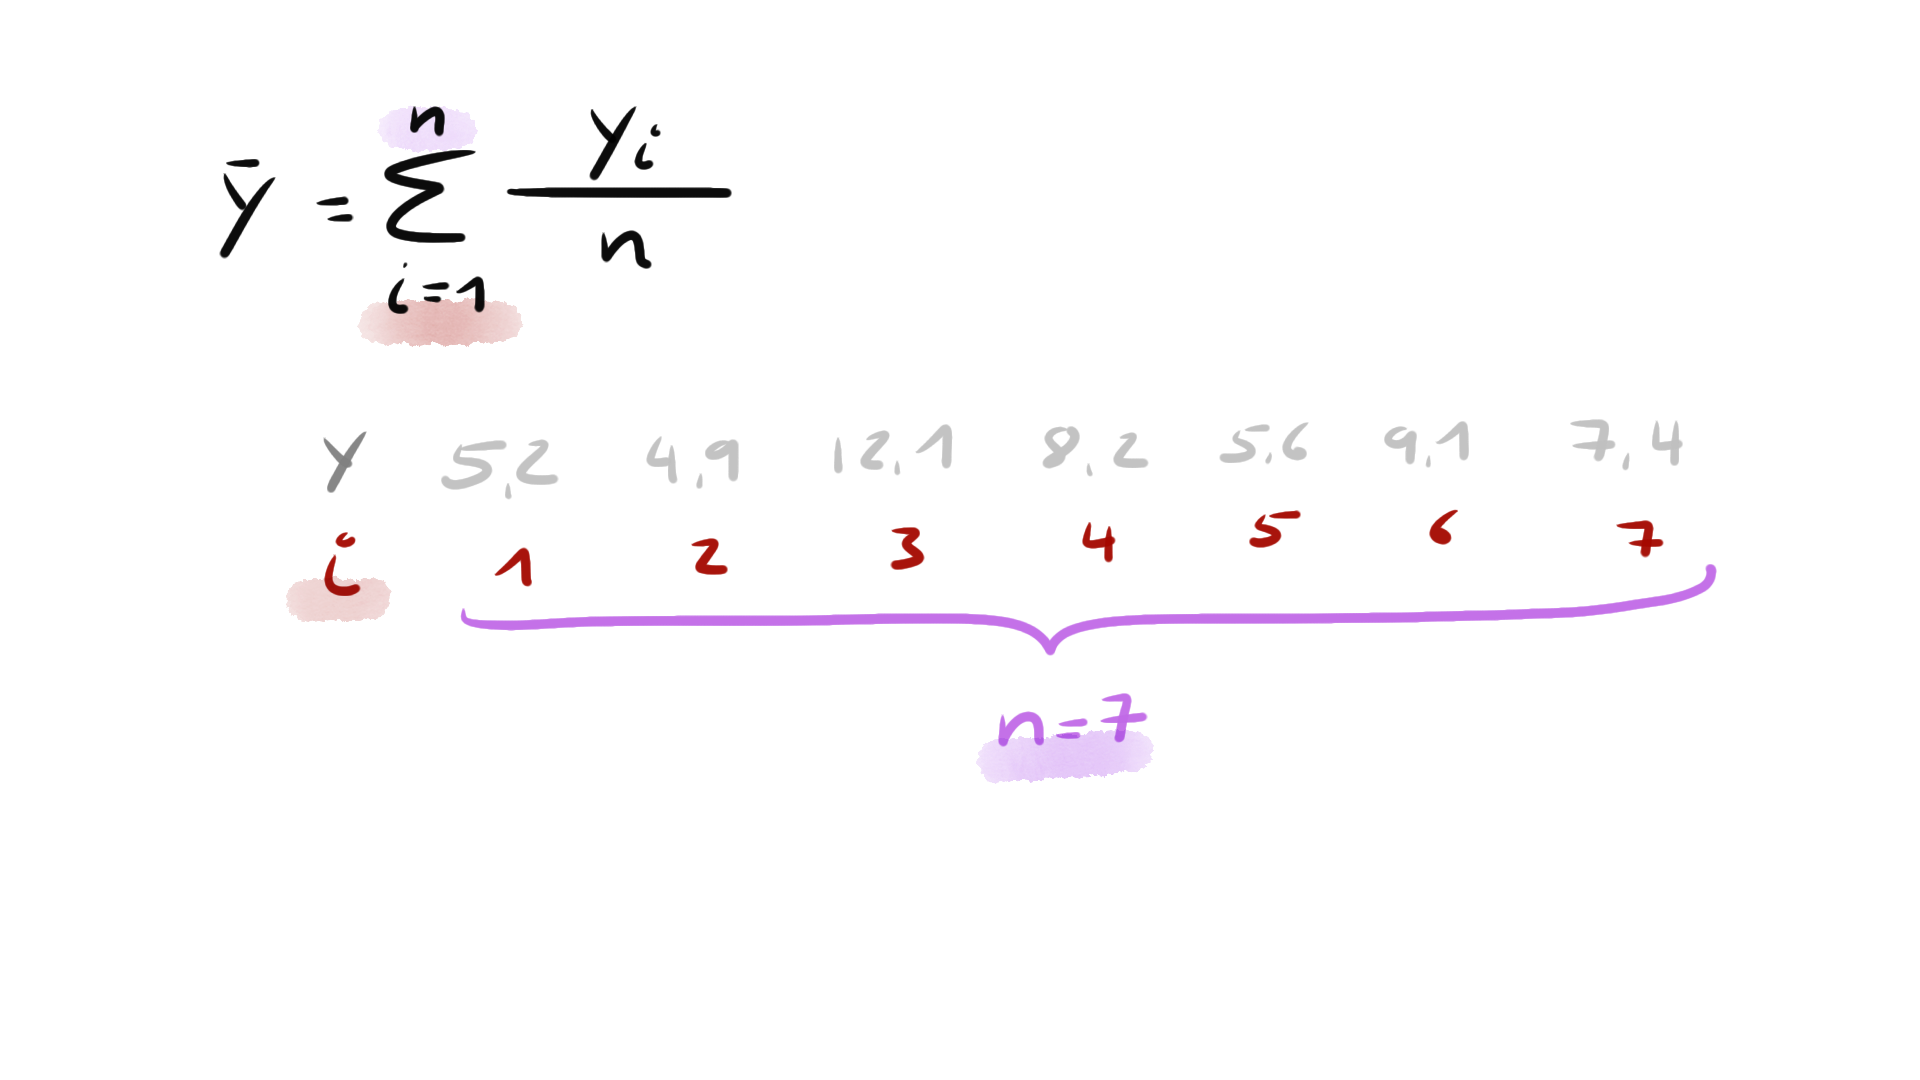 ȳ = n Σ i=1 yi / n
y 5,2 4,9 12,1 8,2 5,6 9,1 7,4
i 1 2 3 4 5 6 7
n=7